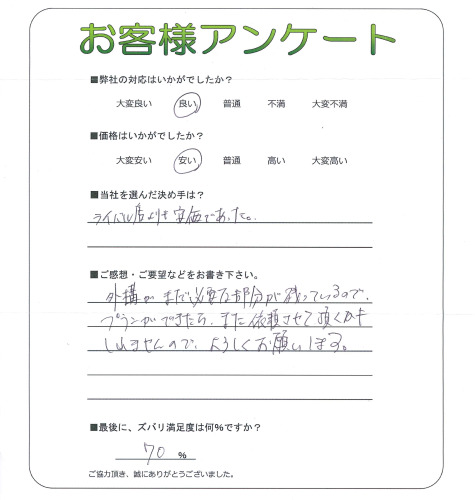 お客様アンケート
■弊社の対応はいかがでしたか？
大変良い 良い 普通 不満 大変不満
■価格はいかがでしたか？
大変安い 安い 普通 高い 大変高い
■当社を選んだ決め手は？
ライバル店よりも安価であった。
■ご感想・ご要望などをお書き下さい。
外構がまだ必要な部分が残っているので、
プランができたら、また依頼させて頂くかも
しれませんので、よろしくお願いします。
■最後に、ズバリ満足度は何%ですか？
70 %
ご協力頂き、誠にありがとうございました。